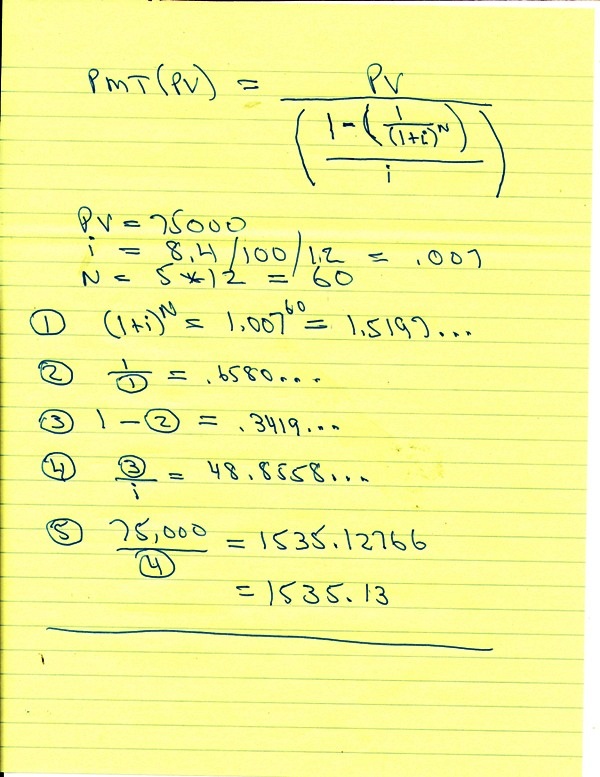 PMT(PV) = PV / ( (1 - (1 / (1+i)^N)) / i )
PV = 75000
i = 8.4/100/12 = .007
N = 5*12 = 60
① (1+i)^N = 1.007^60 = 1.5197...
② 1/① = .6580...
③ 1 - ② = .3419...
④ ③/i = 48.8558...
⑤ 75,000/④ = 1535.12766
= 1535.13